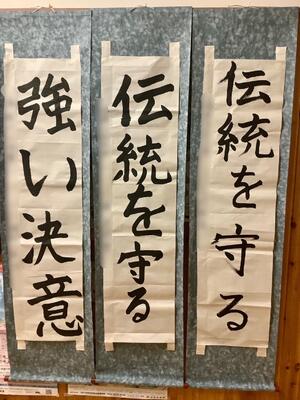 伝統を守る
伝統を守る
強い決意